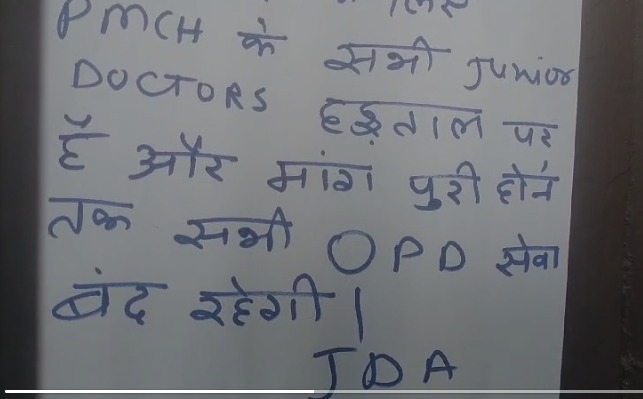 PMCH के सभी Junior
DOCTORS हड़ताल पर
हैं और मांग पुरी होने
तक सभी OPD सेवा
बंद रहेगी।
JDA